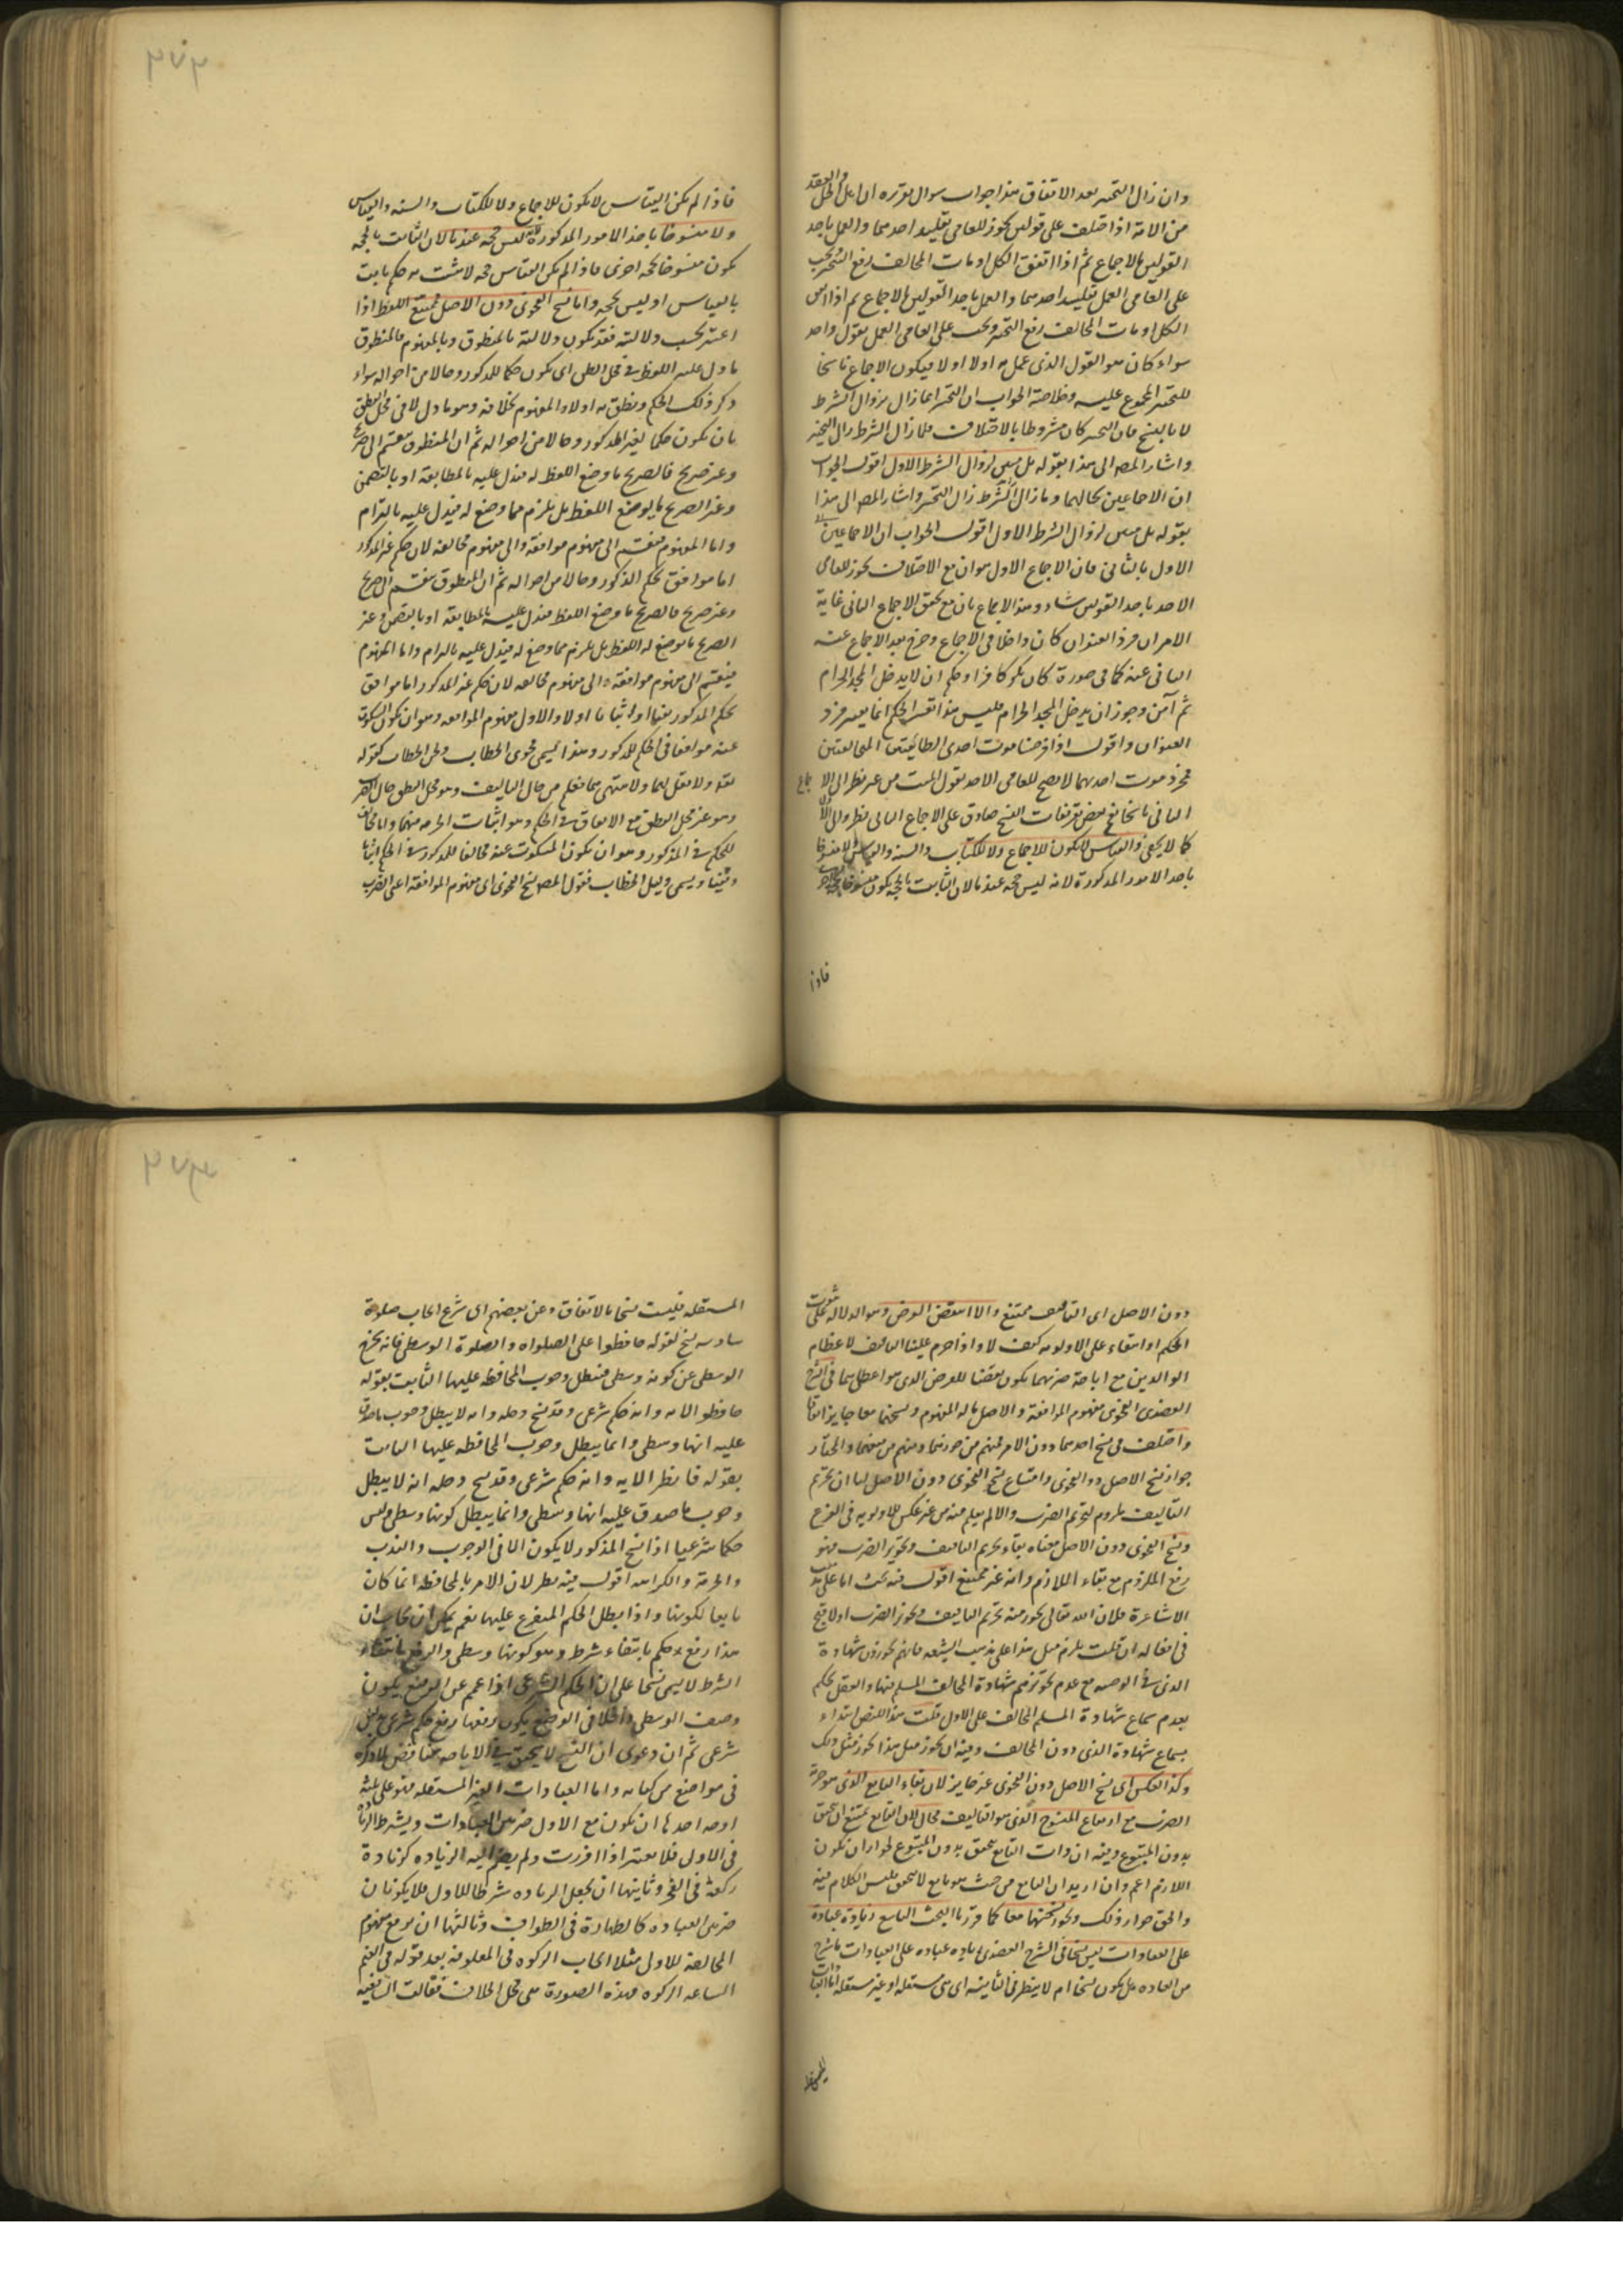 وان زال التخير بعد الاتفاق هذا جواب سوال تقريره ان اهل الحل والعقد
من الامة اذا اختلف على قولين يجوز للعامى تقليد احدهما والعمل باحد
القولين بالاجماع ثم اذا اتفق الكل او مات المخالف رفع التخير يجب
على العامى العمل تقليد احدهما والعمل باحد القولين بالاجماع ثم اذا اتفق
الكل او مات المخالف رفع التخير ويجب على العامى العمل بقول واحد
سواء كان هو القول الذى عمل به اولا اولا فيكون الاجماع ناسخا
للتخير المجمع عليه وخلاصة الجواب ان التخير انما زال بزوال الشرط
لا بالنسخ فان التخير كان مشروطا بالاختلاف فلما زال الشرط زال التخير
واشار المصـ الى هذا بقوله بل ليس لزوال الشرط الاول اقول الجواب
ان الاجماعين بحالهما وما زال الشرط زال التخير واشار المصـ الى هذا
بقوله بل ليس لزوال الشرط الاول اقول الجواب ان الاجماعين
الاول بالثانى فان الاجماع الاول هو ان مع الاختلاف يجوز للعامى
الاخذ باحد القولين شاء وهذا الاجماع بان مع تحقق الاجماع الثانى غاية
الامر ان فرد العنوان كان داخلا فى الاجماع وخرج بعد الاجماع عنه
الثانى عنه كما فى صورة كان بكر كافرا وحكم ان لا يدخل المسجد الحرام
ثم آمن وجوز ان يدخل المسجد الحرام فليس هذا تغير الحكم انما تغير فرد
العنوان واقول اذا فرضنا موت احدى الطائفتين المخالفتين
فبمجرد موت احدهما لا يصح للعامى الاخذ بقول الميت من غير نظر الى الاجماع
الثانى ناسخا نعم بعض تعريفات النسخ صادق على الاجماع الثانى نظرا الى
كما لا يخفى والقياس لا يكون للاجماع ولا للكتاب والسنة والقياس ولا منسوخا
باحد الامور المذكورة لانه ليس حجه عندنا لان الثابت بالحجه يكون منسوخا بحجه اخرى
فاذا
فاذا لم يكن القياس لا يكون للاجماع ولا للكتاب والسنه والقياس
ولا منسوخا باحد الامور المذكورة لانه ليس حجه عندنا لان الثابت بالحجه
يكون منسوخا بحجه اخرى فاذا لم يكن القياس حجه لا يثبت به حكم ثابت
بالقياس او ليس بحجه واما نسخ الفحوى دون الاصل ممتنع اللفظ اذا
اعتبر بحسب دلالته فقد يكون دلالته بالمنطوق وبالمفهوم فالمنطوق
ما دل عليه اللفظ فى محل النطق اى يكون حكما للمذكور وحالا من احواله سواء
ذكر ذلك الحكم ونطق به اولا والمفهوم بخلافه وهو ما دل لا فى محل النطق
بان يكون حكما لغير المذكور وحالا من احواله ثم ان المنطوق منقسم الى صريح
وغير صريح فالصريح ما وضع اللفظ له فيدل عليه بالمطابقة او بالتضمن
وغير الصريح ما لم يوضع اللفظ بل يلزم مما وضع له فيدل عليه بالتزام
واما المفهوم منقسم الى مفهوم موافقة والى مفهوم مخالفه لان حكم غير المذكور
اما موافق لحكم المذكور وحالا من احواله ثم ان المنطوق منقسم الى صريح
وغير صريح فالصريح ما وضع اللفظ فيدل عليه بالمطابقة او بالتضمن وغير
الصريح ما لم يوضع له اللفظ بل يلزم مما وضع له فيدل عليه بالتزام واما المفهوم
فينقسم الى مفهوم موافقه والى مفهوم مخالفه لان حكم غير المذكور اما موافق
لحكم المذكور نفيا او اثباتا اولا والاول مفهوم الموافقه وهو ان يكون المسكوت
عنه موافقا فى الحكم للمذكور وهذا يسمى فحوى الخطاب ولحن الخطاب كقوله
تعه ولا تقل لهما ولا تنهرهما فعلم من حال التأليف وهو محل النطق حال الضرب
وهو غير محل النطق مع الاتفاق فى الحكم وهو اثبات الحرمه فيهما واما مخالف
للحكم فى المذكور وهو ان يكون المسكوت عنه مخالفا للمذكور فى الحكم اثباتا
ونفيا ويسمى دليل الخطاب فقول المصـ نسخ الفحوى اى مفهوم الموافقة اعنى الضرب
دون الاصل اى التأليف ممتنع والا انتقض الغرض وهو الدلاله على ثبوت
الحكم او انتفاء على الاولويه كيف لا واذا حرم علينا التأليف لاعظام
الوالدين مع اباحة ضربهما يكون نقضا للغرض الذى هو اعظامهما فى الشرح
العضدى الفحوى مفهوم الموافقة والاصل ما له المفهوم ونسخهما معا جايز اتفاقا
واختلف فى نسخ احدهما دون الاخر فمنهم من جوزهما ومنهم من منعهما والمختار
جواز نسخ الاصل دون الفحوى وامتناع نسخ الفحوى دون الاصل لنا ان تحريم
التأليف ملزوم لتحريم الضرب والا لم يعلم منه من غير عكس للاولويه فى الفرع
ونسخ الفحوى دون الاصل معناه بقاء تحريم التأليف وتجويز الضرب وهو
رفع الملزوم مع بقاء اللازم وانه غير ممتنع اقول فيه بحث اما على مذهب
الاشاعرة فلان الله تعالى يجوز منه تحريم التأليف وتجويز الضرب اولا قبح
فى افعاله ان قلت يلزم مثل هذا على مذهب الشيعه فانهم يجوزون شهادة
الذمى فى الوصيه مع عدم تجويزهم شهادة المخالف المسلم فيها والعقل يحكم
بعدم سماع شهادة المسلم المخالف على الاول قلت هذا للنص ابتداء
بسماع شهادة الذمى دون المخالف وفيه ان تجويز مثل هذا يجوز مثل ذلك
وكذا العكس اى نسخ الاصل دون الفحوى غير جايز لان بقاء التابع الذى هو حرمة
الضرب مع ارتفاع المتبوع الذى هو التأليف محال لان التابع يمتنع ان يتحقق
بدون المتبوع وفيه ان ذات التابع يتحقق بدون المتبوع لجواز ان يكون
اللازم اعم وان اريد ان التابع من حيث هو تابع لا يتحقق فليس الكلام فيه
والحق جواز ذلك ويجوز نسخهما معا كما قررنا البحث التاسع زيادة عبادة
على العبادات ليس نسخا فى الشرح العضدى زياده عباده على العبادات ما شرع
من العباده هل يكون نسخا ام لا ينظر فى الثانيه اهى مستقله او غير مستقله اما العبادات
المستقله
المستقله فليست نسخا بالاتفاق وعن بعضهم اى شرع ايجاب صلوة
سادسه نسخ لقوله حافظوا على الصلواه والصلوة الوسطى فانه يخرج
الوسطى عن كونه وسطى فيبطل وجوب المحافظه عليها الثابت بقوله
حافظوا الايه وانه حكم شرعى وقد نسخ وجله وانه لا يبطل وجوب ما صدق
عليه انها وسطى وانما يبطل وجوب المحافظه عليها الثابت
بقوله فانظر الايه وانه حكم شرعى وقد نسخ وجله انه لا يبطل
وجوب ما صدق عليه انها وسطى وانما يبطل كونها وسطى وليس
حكما شرعيا اذا نسخ المذكور لا يكون الا فى الوجوب والندب
والحرمة والكراهه اقول فيه نظر لان الامر بالمحافظه انما كان
تابعا لكونها واذا بطل الحكم المتفرع عليها نعم يمكن ان يجاب ان
هذا رفع حكم بانتفاء شرط وهو كونها وسطى والرفع بانتفاء
الشرط لا يسمى نسخا على ان الحكم الشرعى اذا عمم عن الوضع يكون
وصف الوسطى داخلا فى الوضع يكون رفعها رفع حكم شرعى بدليل
شرعى ثم ان دعوى ان النسخ لا يتحقق فى الاباحه مناقض لما ذكره
فى مواضع من كتابه واما العبادات الغير المستقله فهو على ثلثة
اوجه احدها ان يكون مع الاول جزءى العبادات ويشترط الزيادة
فى الاولى فلا يعتبر اذا افردت ولم يضم اليه الزياده كزيادة
ركعة فى الفجر وثانيها ان يجعل الزياده شرطا للاول فلا يكونان
جزءى العباده كالطهارة فى الطواف وثالثها ان يرفع مفهوم
المخالفة للاول مثلا ايجاب الزكوه فى المعلوفه بعد قوله فى الغنم
السائمه الزكوه فهذه الصورة هى محل الخلاف فقالت الشافعيه